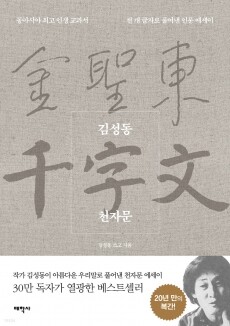 동아시아 최고 인생 교과서
천 개 글자로 풀어낸 인문 에세이
金聖東
김성동
千字文
천자문
작가 김성동이 아름다운 우리말로 풀어낸 천자문 에세이
30만 독자가 열광한 베스트셀러
20년 만의
복간!
태학사